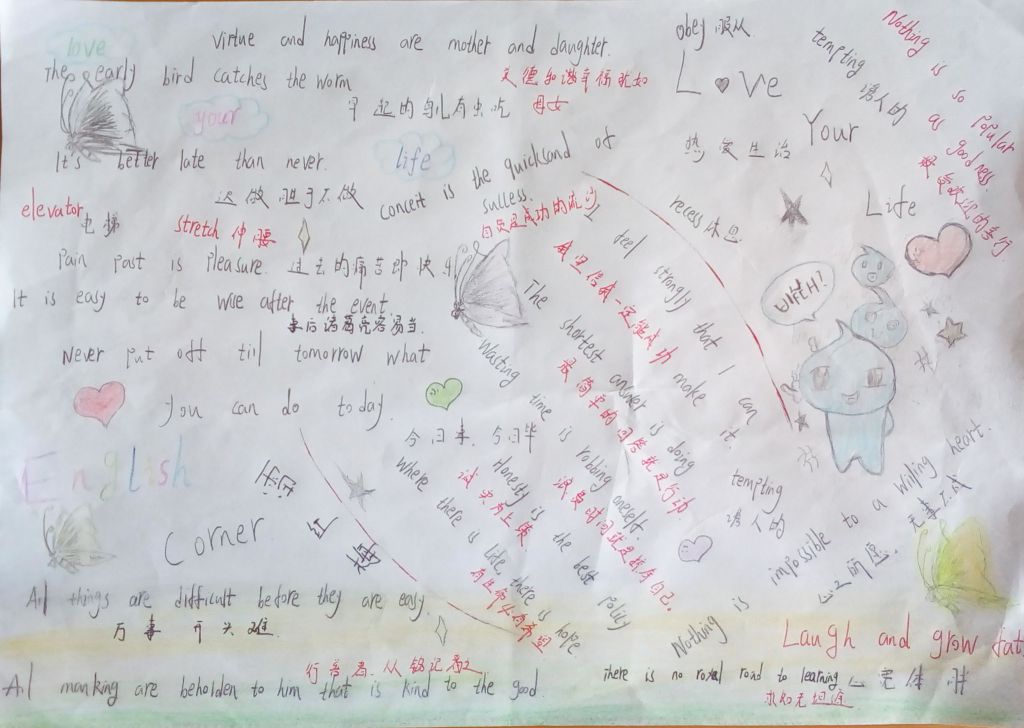 love
Virtue and happiness are mother and daughter.
The early bird catches the worm
早起的鸟儿有虫吃
母女
your
It's better late than never.
life
迟做胜于不做
concert is the quicksand of success.
自负是成功的流沙
elevator 电梯
stretch 伸腰
Pain past is Pleasure. 过去的痛苦即快乐
It is easy to be wise after the event.
事后诸葛亮容易当.
Never put off till tomorrow what
you can do today.
今日事, 今日毕
English
Corner
英语角
All things are difficult before they are easy.
万事开头难.
行善者.人人铭记之
All manking are beholden to him that is kind to the good.
obey 服从
Love
Your
Life
热爱生活
tempting
诱人的
Nothing is so popular as goodness.
recess 休息
I feel strongly that I can make it.
我坚信我一定能成功
The shortest answer is doing
最简单的回答就是行动.
Wasting time is robbing oneself.
浪费时间就是掠夺自己.
Honesty is the best policy
诚实为上策.
Where there is life, there is hope
有生命必有希望
tempting
诱人的
Nothing is impossible to a willing heart.
无事不成
Laugh and grow fat
心宽体胖
There is no royal road to learning
求知无坦途